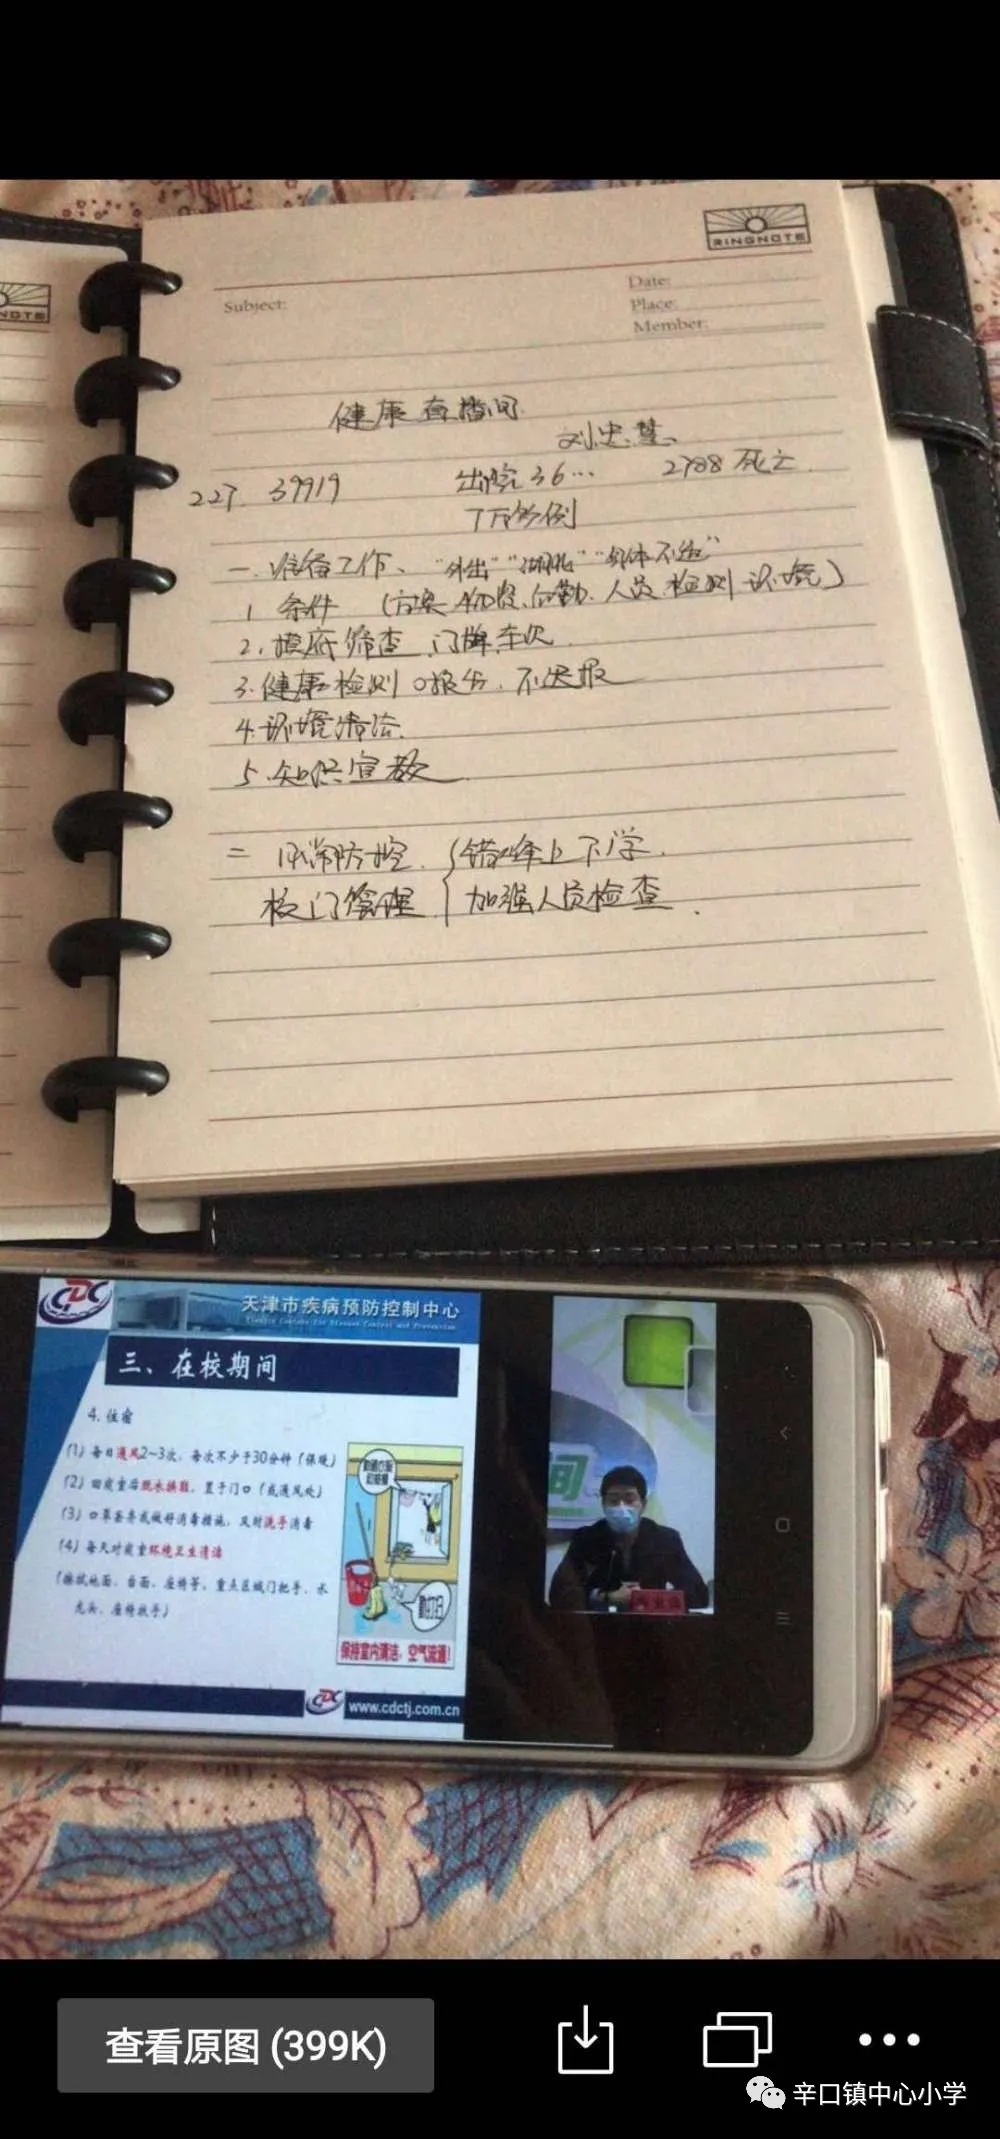 RINGNOTE
Subject:
Date:
Place:
Member:
健康直播间
刘忠慧
2.27. 39919 出院36… 2788死亡
7万多例
一、准备工作、"外出""湖北""身体不适"
1 条件 (方案 物资、后勤、人员 检测 环境)
2. 摸底筛查、门牌、车次
3. 健康检测 0报告、不迟报
4. 环境清洁
5. 知识宣教
二 日常防控
校门管理
错峰上下学
加强人员检查
CDC
天津市疾病预防控制中心
Tianjin Centers for Disease Control and Prevention
三、在校期间
4. 住宿
(1) 每日通风2~3次，每次不少于30分钟(保暖)
(2) 回寝室后脱水换鞋，置于门口(或通风处)
(3) 口罩丢弃或做好消毒措施，及时洗手消毒
(4) 每天对寝室环境卫生清洁
(擦拭地面、台面、座椅等，重点区域门把手、水
龙头、座椅扶手)
勤打扫
保持室内清洁，空气流通!
CDC
www.cdctj.com.cn
间
查看原图 (399K)
辛口镇中心小学